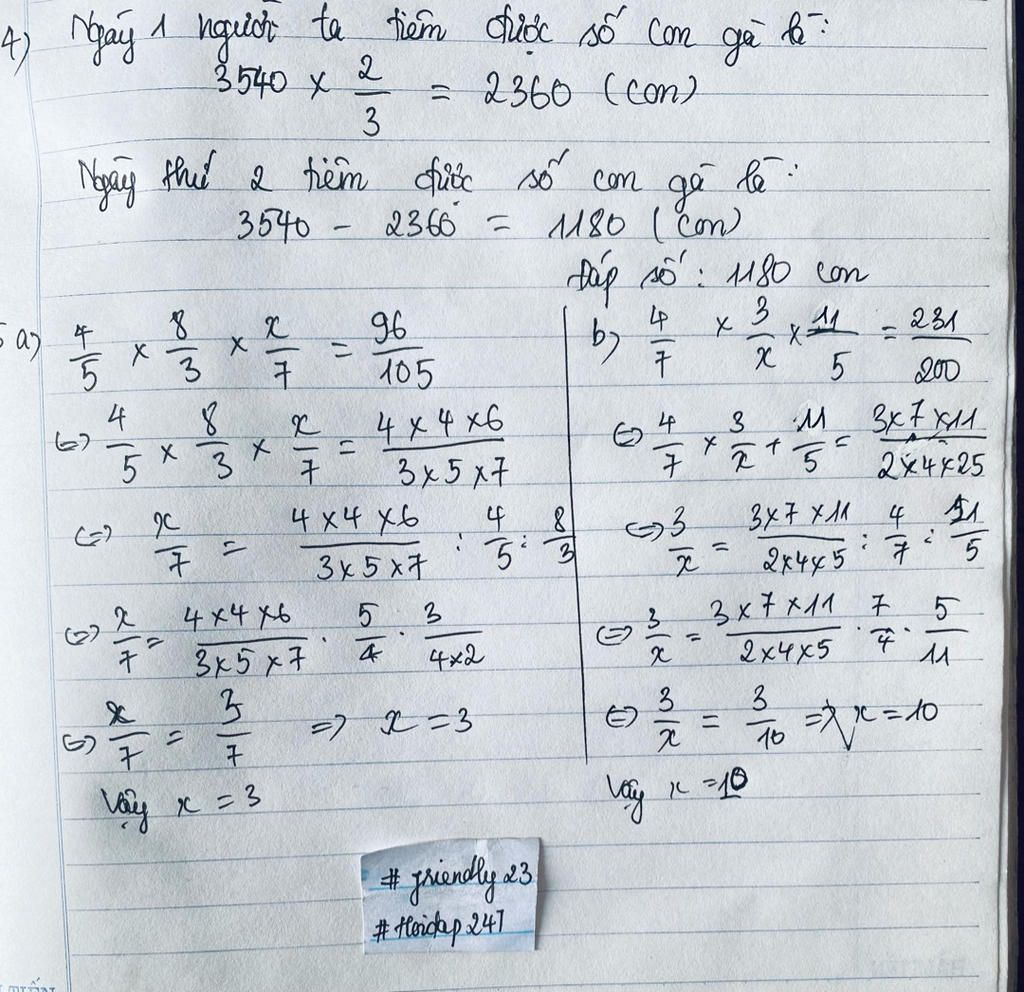 4) Ngày 1 người ta tiêm được số con gà là:
3540 × 2/3 = 2360 (con)
Ngày thứ 2 tiêm được số con gà là:
3540 - 2360 = 1180 (con)
Đáp số: 1180 con
5 a) 4/5 × 8/3 × x/7 = 96/105
(=) 4/5 × 8/3 × x/7 = 4 × 4 × 6 / 3 × 5 × 7
(=) x/7 = 4 × 4 × 6 / 3 × 5 × 7 : 4/5 : 8/3
(=) x/7 = 4 × 4 × 6 / 3 × 5 × 7 . 5/4 . 3/4×2
(=) x/7 = 3/7 => x = 3
Vậy x = 3
b) 4/7 × 3/x × 11/5 = 231/200
(=) 4/7 × 3/x + 11/5 = 3×7×11 / 2×4×25
(=) 3/x = 3×7×11 / 2×4×5 : 4/7 : 11/5
(=) 3/x = 3×7×11 / 2×4×5 . 7/4 . 5/11
(=) 3/x = 3/10 => x = 10
Vậy x = 10
# friendly 23
# Hoidap 247